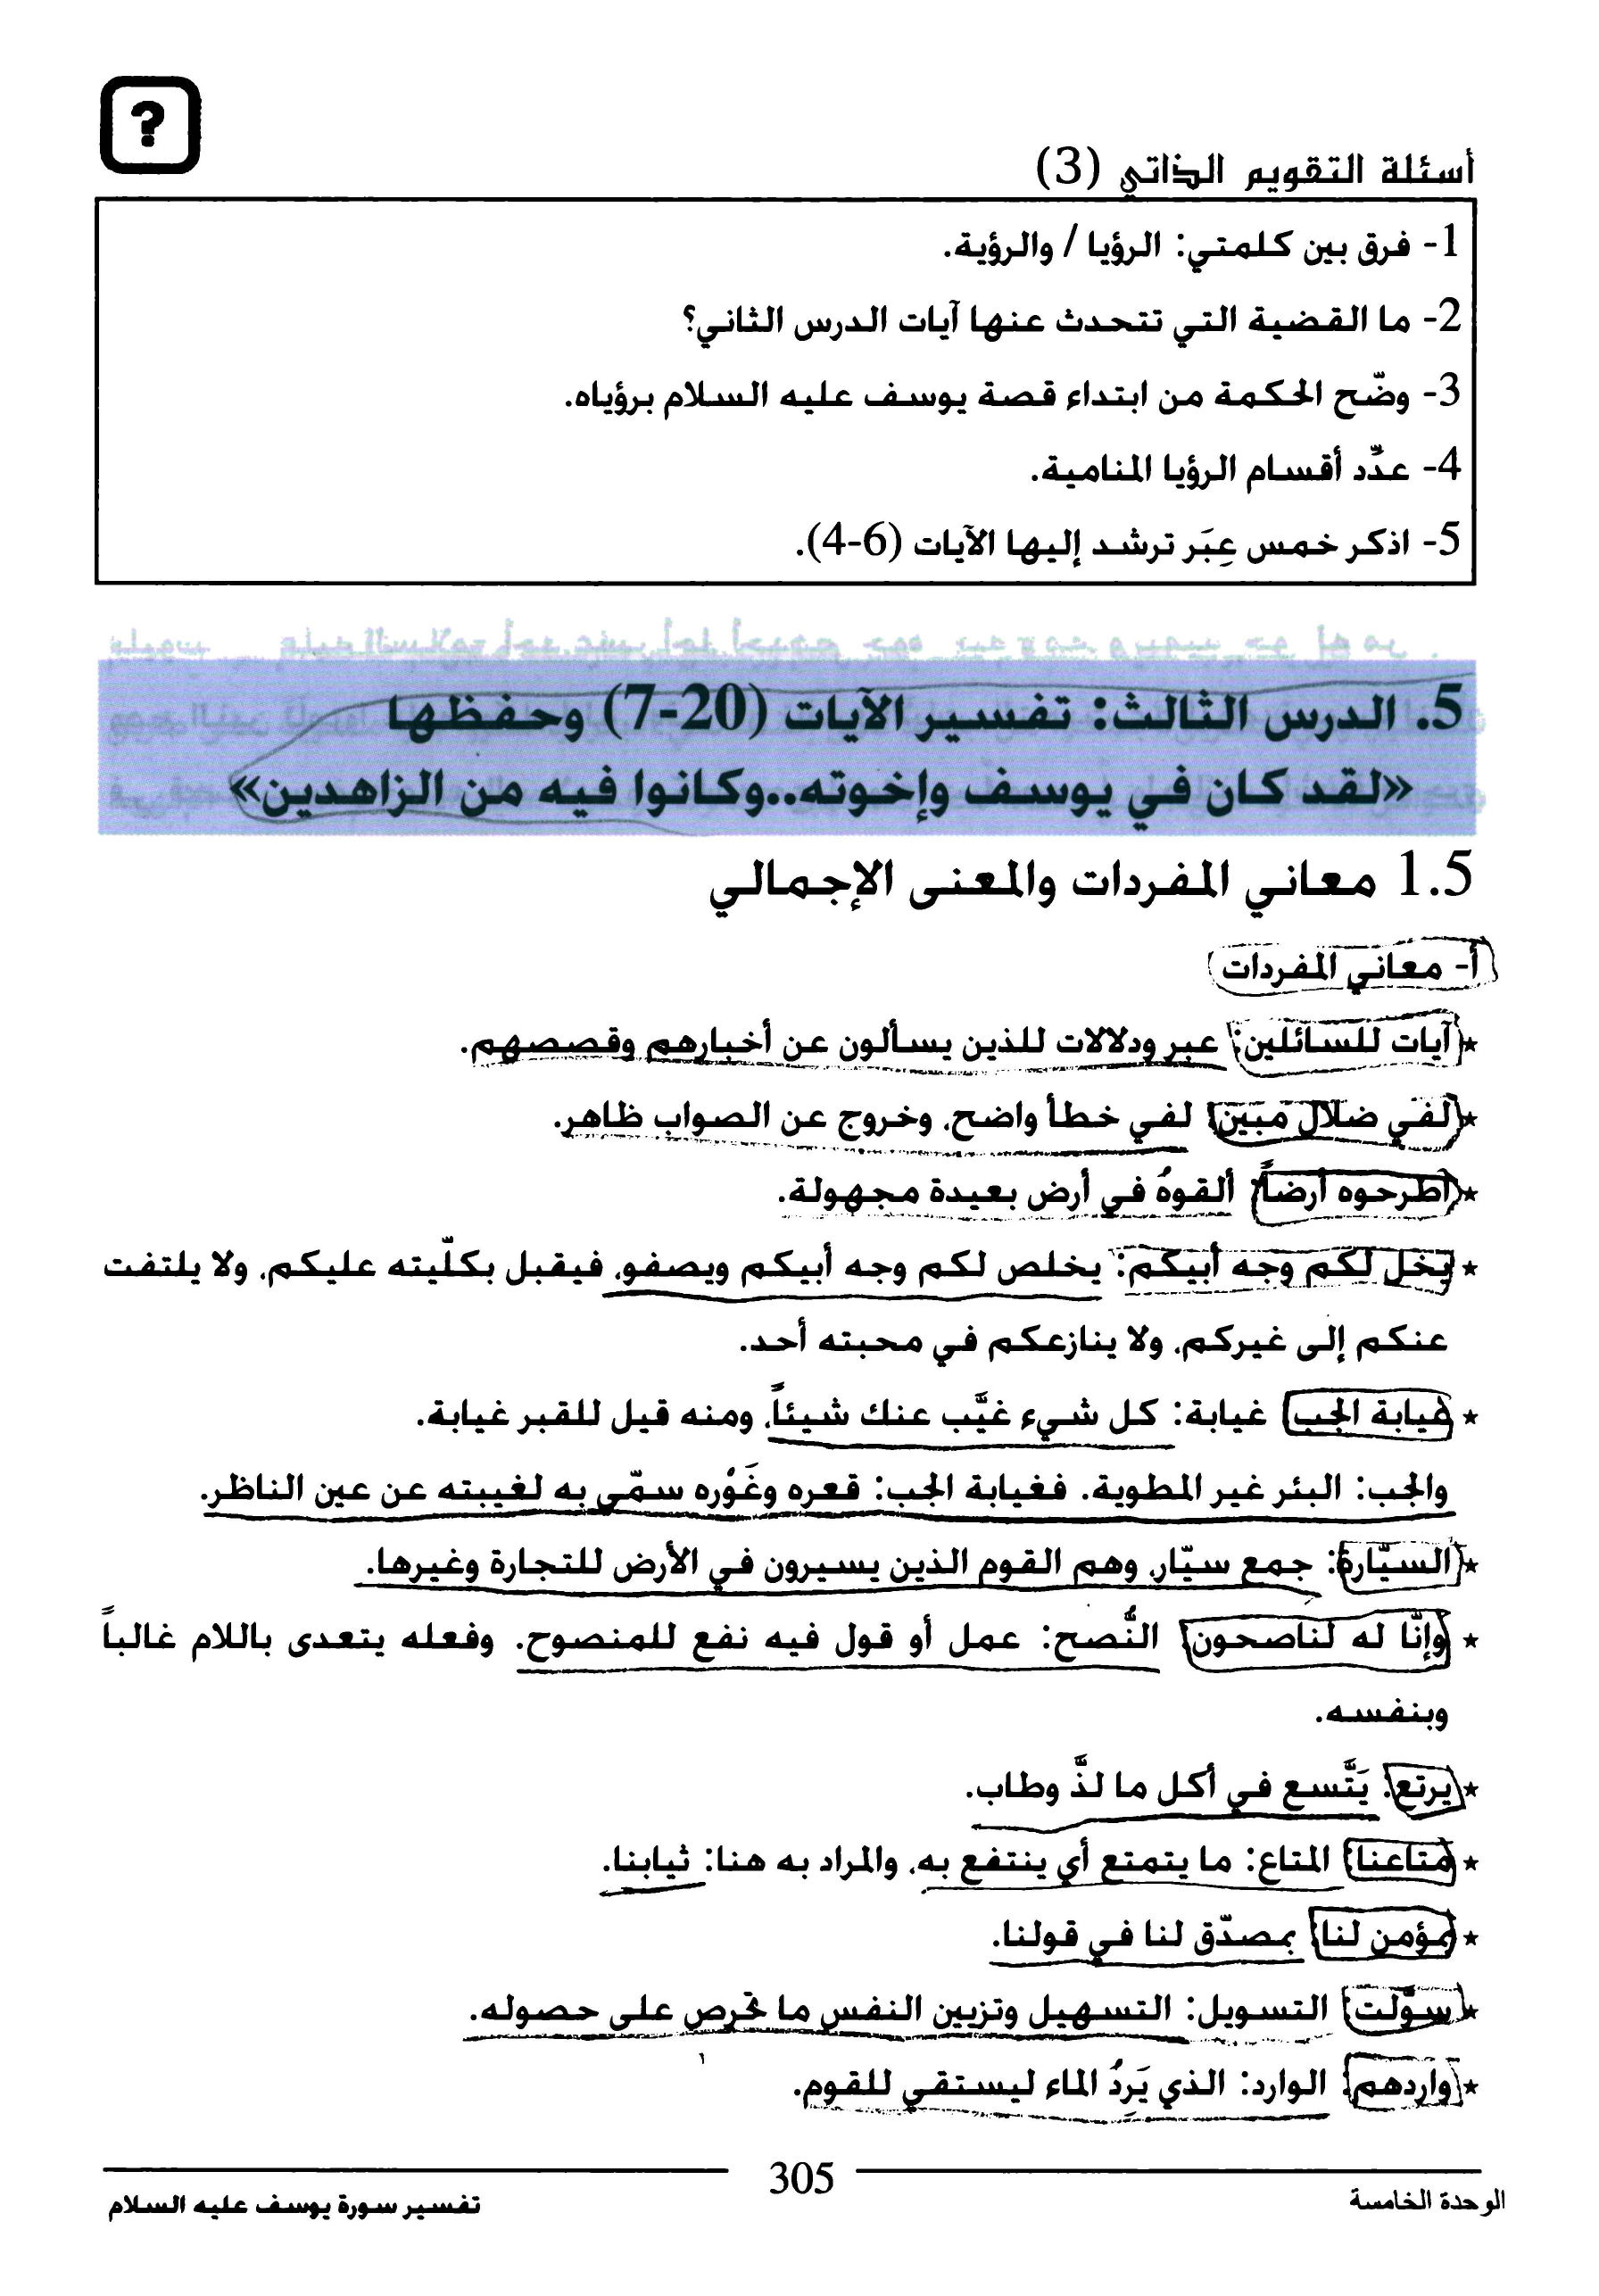 ?
أسئلة التقويم الذاتي (3)
1- فرق بين كلمتي: الرؤيا / والرؤية.
2- ما القضية التي تتحدث عنها آيات الدرس الثاني؟
3- وضّح الحكمة من ابتداء قصة يوسف عليه السلام برؤياه.
4- عدِّد أقسام الرؤيا المنامية.
5- اذكر خمس عِبَر ترشد إليها الآيات (6-4).
5. الدرس الثالث: تفسير الآيات (20-7) وحفظها
«لقد كان في يوسف وإخوته..وكانوا فيه من الزاهدين»
1.5 معاني المفردات والمعنى الإجمالي
أ- معاني المفردات
* آيات للسائلين: عبر ودلالات للذين يسألون عن أخبارهم وقصصهم.
* لفي ضلال مبين: لفي خطأ واضح، وخروج عن الصواب ظاهر.
* اطرحوه أرضاً: ألقوهُ في أرض بعيدة مجهولة.
* يخل لكم وجه أبيكم: يخلص لكم وجه أبيكم ويصفو، فيقبل بكلّيته عليكم، ولا يلتفت
عنكم إلى غيركم، ولا ينازعكم في محبته أحد.
* غيابة الجب: غيابة: كل شيء غيَّب عنك شيئاً، ومنه قيل للقبر غيابة.
والجب: البئر غير المطوية. فغيابة الجب: قعره وغَوْره سمّي به لغيبته عن عين الناظر.
* السيّارة: جمع سيّار، وهم القوم الذين يسيرون في الأرض للتجارة وغيرها.
* وإنّا له لناصحون: النُّصح: عمل أو قول فيه نفع للمنصوح. وفعله يتعدى باللام غالباً
وبنفسه.
* يرتع: يَتَّسع في أكل ما لذَّ وطاب.
* متاعنا: المتاع: ما يتمتع أي ينتفع به، والمراد به هنا: ثيابنا.
* بمؤمن لنا: بمصدّق لنا في قولنا.
* سوّلت: التسويل: التسهيل وتزيين النفس ما تحرص على حصوله.
* واردهم: الوارد: الذي يَرِدُ الماء ليستقي للقوم.
الوحدة الخامسة
305
تفسير سورة يوسف عليه السلام